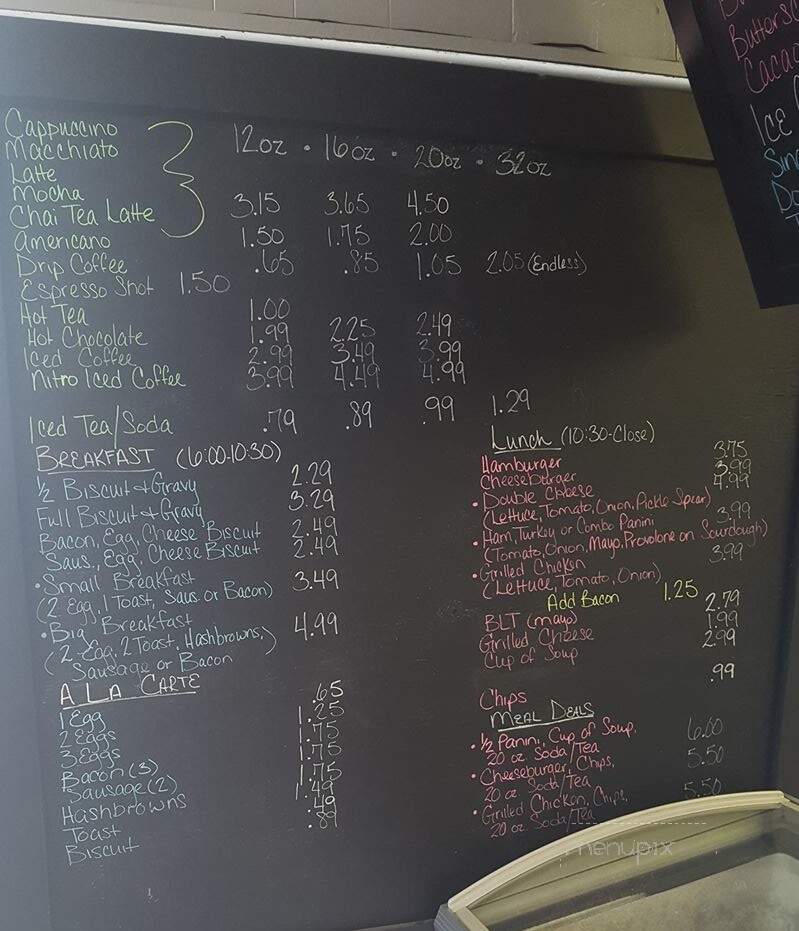 Cappuccino
Macchiato
Latte
Mocha
Chai Tea Latte
12oz · 16oz · 20oz · 32oz
3.15 3.65 4.50
Americano 1.50 1.75 2.00
Drip Coffee .65 .85 1.05 2.05 (Endless)
Espresso Shot 1.50
Hot Tea 1.00
Hot Chocolate 1.99 2.25 2.49
Iced Coffee 2.99 3.49 3.99
Nitro Iced Coffee 3.99 4.49 4.99
Iced Tea/Soda .79 .89 .99 1.29
BREAKFAST (6:00-10:30)
1/2 Biscuit & Gravy 2.29
Full Biscuit & Gravy 3.29
Bacon, Egg, Cheese Biscuit 2.49
Saus., Egg, Cheese Biscuit 2.49
• Small Breakfast 3.49
(2 Egg, 1 Toast, Saus. or Bacon)
• Big Breakfast 4.99
(2 Egg, 2 Toast, Hashbrowns,
Sausage or Bacon)
A LA CARTE
1 Egg .65
2 Eggs 1.25
3 Eggs 1.75
Bacon (3) 1.75
Sausage (2) 1.75
Hashbrowns 1.49
Toast .49
Biscuit .89
Lunch (10:30-Close)
Hamburger 3.75
Cheeseburger 3.99
• Double Cheese 4.99
(Lettuce, Tomato, Onion, Pickle Spear)
• Ham, Turkey or Combo Panini 3.99
(Tomato, Onion, Mayo, Provolone on Sourdough)
• Grilled Chicken 3.99
(Lettuce, Tomato, Onion)
Add Bacon 1.25
BLT (mayo) 2.79
Grilled Cheese 1.99
Cup of Soup 2.99
Chips .99
MEAL DEALS
• 1/2 Panini, Cup of Soup, 6.00
20 oz. Soda/Tea
• Cheeseburger, Chips, 5.50
20 oz. Soda/Tea
• Grilled Chicken, Chips, 5.50
20 oz. Soda/Tea
Cacao
ICE
menupix